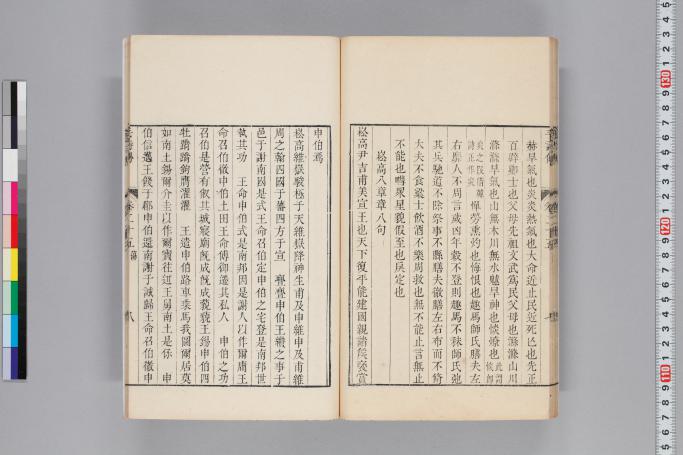 赫旱氣也炎炎熱氣也大命近止民近死亡也先正
百辟卿士也父母先祖文武爲民父母也滌滌山川
滌滌旱氣也山無木川無水魃旱神也惔燎也
憚勞熏灼也悔恨也趣馬師氏膳夫左
右靡人不周言歲凶年穀不登則趣馬不秣師氏弛
其兵馳道不除祭事不縣膳夫徹膳左右布而不脩
大夫不食粱士飲酒不樂周救也無不能止言無止
不能也嘒衆星貌假至也戾定也
崧高八章章八句
崧高尹吉甫美宣王也天下復平能建國親諸侯襃賞
申伯焉
崧高維嶽駿極于天維嶽降神生甫及申維申及甫維
周之翰四國于蕃四方于宣 亹亹申伯王纘之事于
邑于謝南國是式王命召伯定申伯之宅登是南邦世
執其功 王命申伯式是南邦因是謝人以作爾庸王
命召伯徹申伯土田王命傅御遷其私人 申伯之功
召伯是營有俶其城寢廟旣成旣成藐藐王錫申伯四
牡蹻蹻鉤膺濯濯 王遣申伯路車乘馬我圖爾居莫
如南土錫爾介圭以作爾寶往近王舅南土是保 申
伯信邁王餞于郿申伯還南謝于誠歸王命召伯徹申